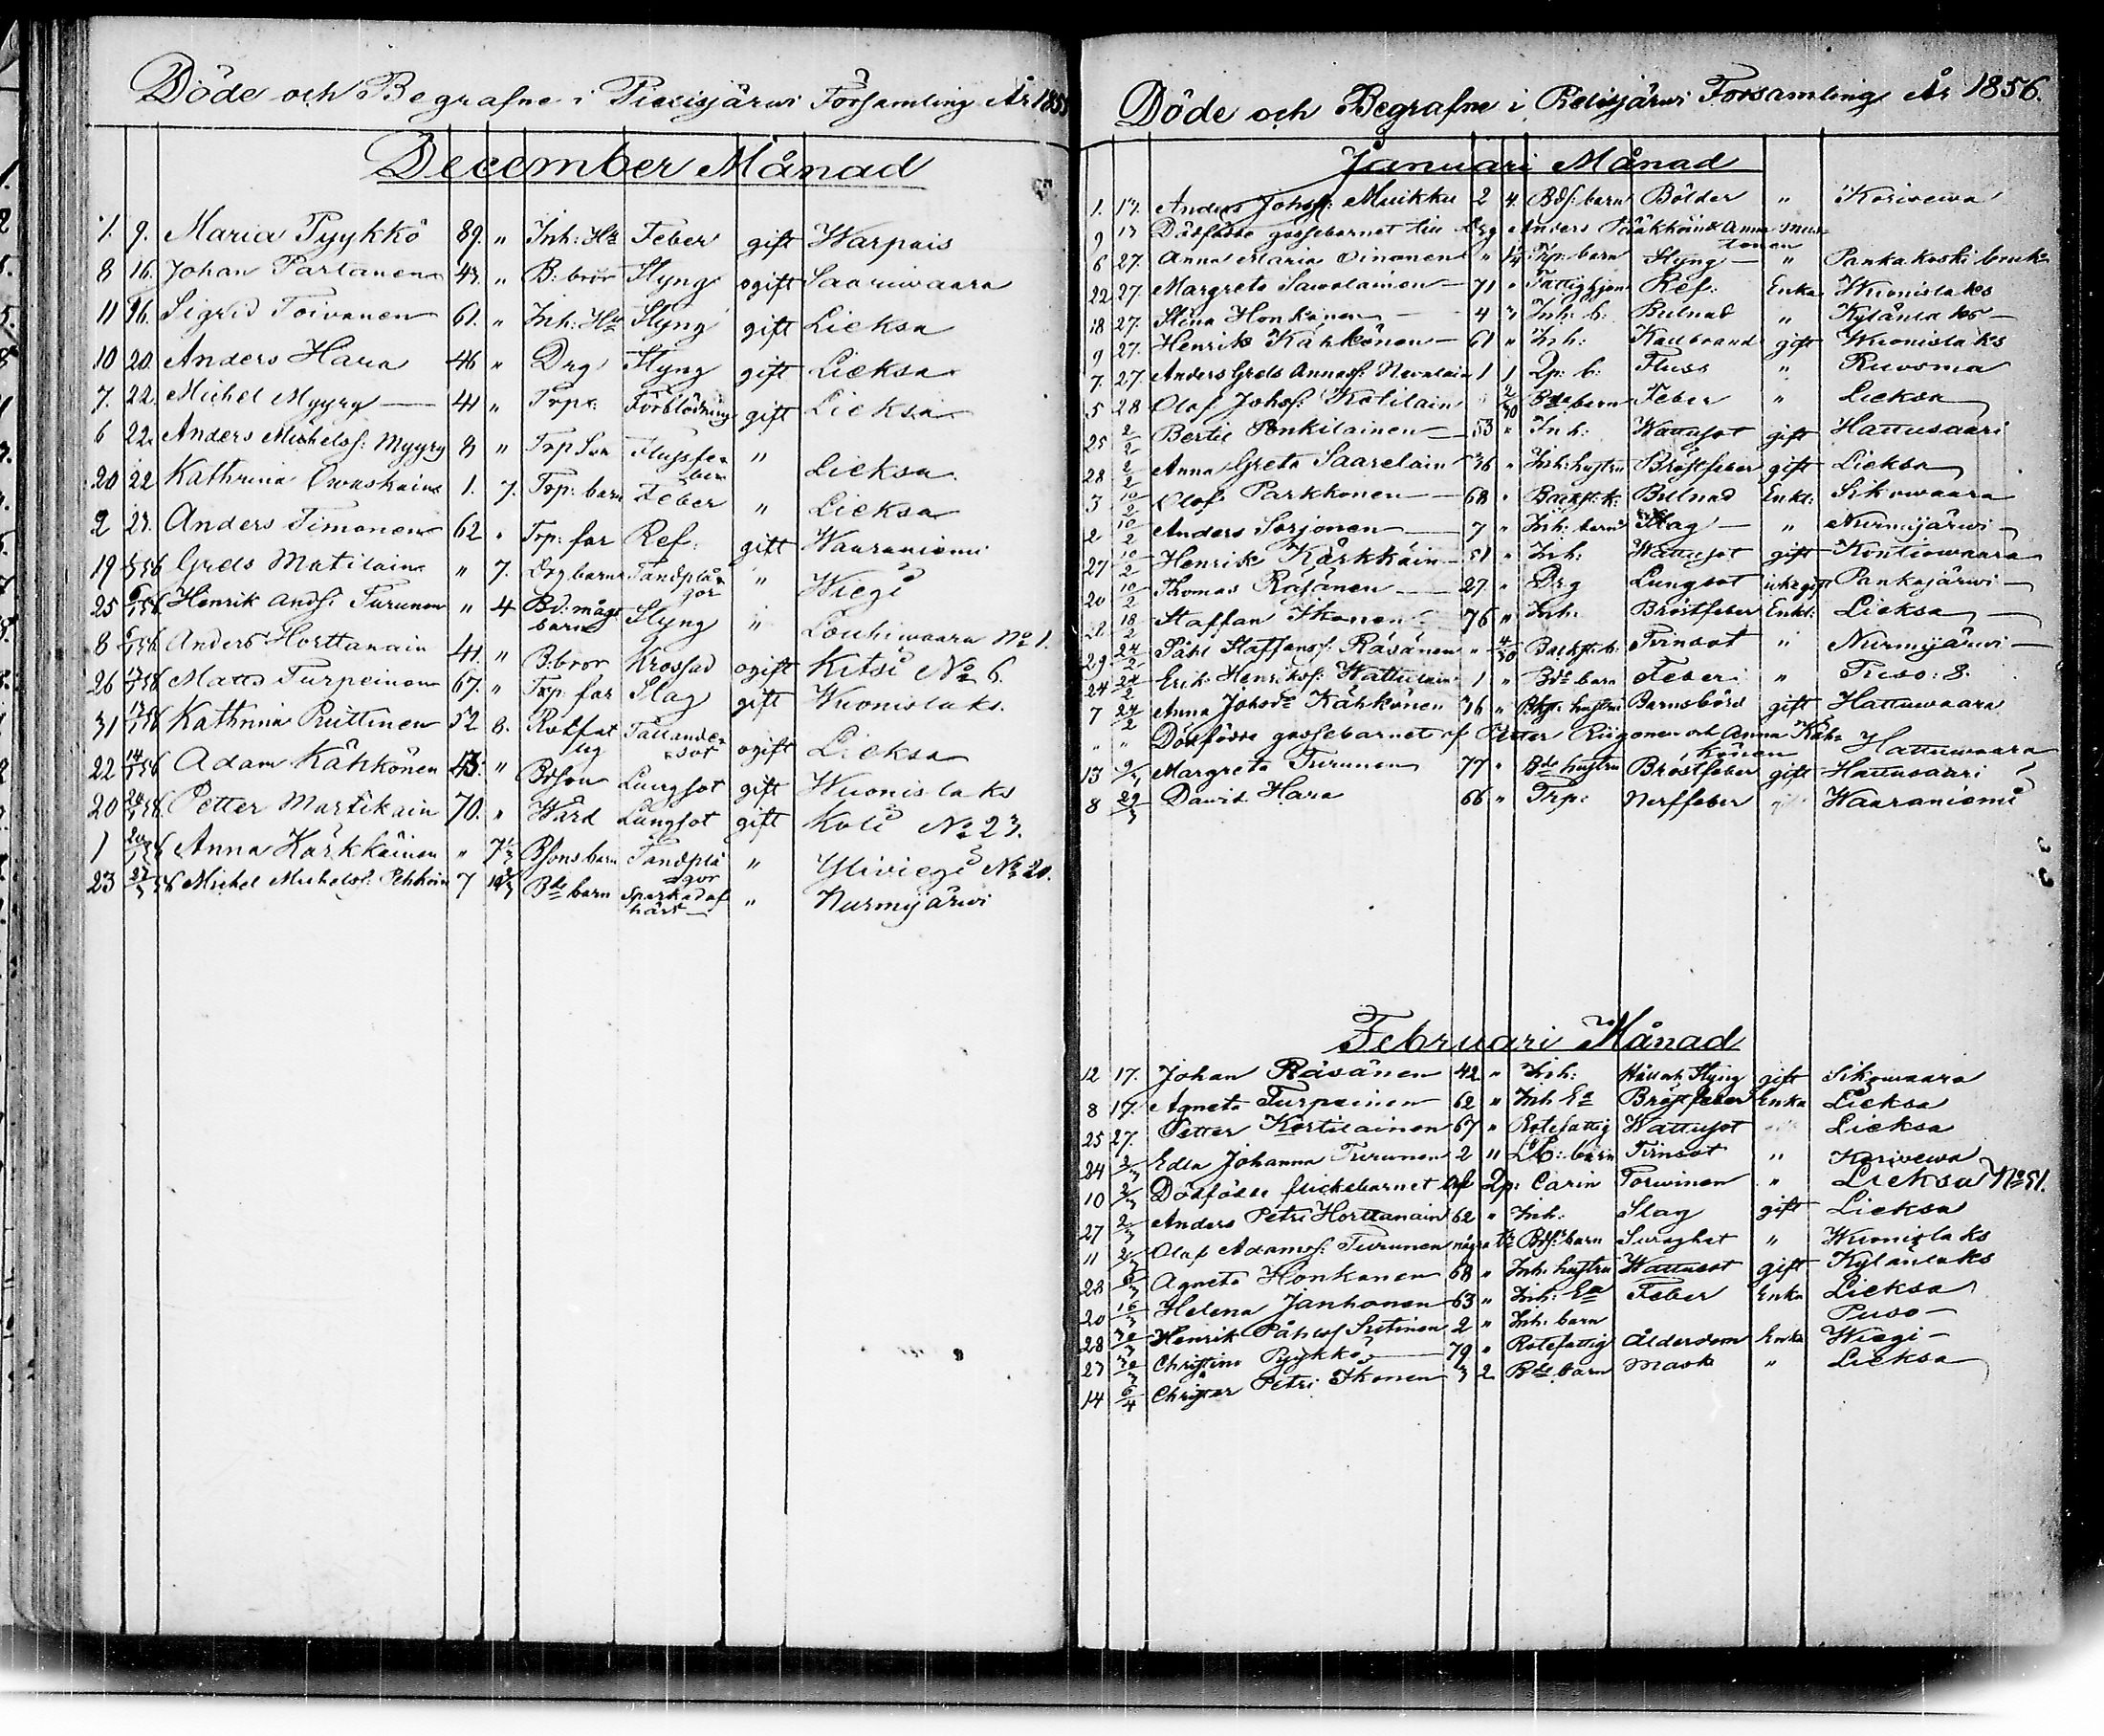 Döde och Begrafne i Pielisjärwi Församling År 1855
December Månad
1. 9. Maria Pyykkö 89. " Inh: Hu Feber gift Warpais
8 16. Johan Partanen 43. " B: bror Styng ogift Saariwaara
11 16. Sigrid Toivanen 61. " Inh: Hu Styng gift Lieksa
10 20. Anders Hara 46 " Drg Styng gift Lieksa
7. 22. Michel Myyry 41 " Torp: Förblödning gift Lieksa
6 22. Anders Michelss: Myyry 8 " Torp Son Flussfeber " Lieksa
20 22 Kathrina Owaskain 1. 7. Torp: barn Feber " Lieksa
2 23. Anders Timonen 62 " Torp: far Ref: gift Waaraniemi
19 56 Greta Matilain " 7. Drg barn Tandplågor " Wiegi
25 6/1 56 Henrik Ands: Turunen " 4 Bd: mågs barn Styng " Louhiwaara No 1.
8 6/1 56 Anders Horttanain 41. " B:bror Krossad ogift Kitsi No 6.
26 56 Matts Turpeinen 67. " Torp far Slag gift Wuonislaks.
31 13/1 56 Kathrina Ruttinen 52 8. Rotfattig Fallandesot ogift Lieksa
22 14/1 56 Adam Kähkönen 43. " Bdson Lungsot gift Wuonislaks
20 20/1 56 Petter Martikain 70. " Wärd Lungsot gift Koli No 23.
1 20/1 56 Anna Kärkkäinen " 7 1/3 Bsons barn Tandplågor " Yliviegi No 20.
23 27/1 56 Michel Michelss: Pehkoin 7 10 2/3 Bde barn Sparkad af häst " Nurmijärwi
Döde och Begrafne i Pielisjärwi Församling År 1856.
Januari Månad
1. 13. Anders Johss: Muikku 2 4. Bds: barn Bölder " Koriwewa
9 13 Dödfödde gossebarnet till Drg Anders Kärkkäin & Anna Mustonen
6 27. Anna Maria Oinonen " 1/4 Torp: barn Styng " Pankakoski bruk
22 27. Margreta Sawolainen 71 " Fattighjon Ref: Enka Wuonislaks
18 27. Stina Honkanen 4 3 Inh: b: Bulnad " Kylänlaks
9 27. Henrik Kähkönen 61 " Inh: Kallbrand gift Wuonislaks
7. 27. Anders Greta Annass: Nevalain 1 1 Qp: b: Fluss " Ruosma
5 28 Olof Johss: Kotilain " 2/30 Bde barn Feber " Lieksa
25 2/2 Bertil Penkilainen 53 " Inh: Wattusot gift Hattusaari
28 2/2 Anna Greta Saarelain 36 " Inh: hustru Bröstfeber gift Lieksa
3 10/2 Olof Parkkonen 68 " Backst: k: Bulnad Enkl: Sikowaara
2 10/2 Anders Sorjonen 7 " Inh: barn Slag " Nurmijärwi
27 10/2 Henrik Kärkkäin 51 " Inh: Wattusot gift Kontiowaara
20 10/2 Thomas Räsänen 27. " Drg Lungsot icke gift Pankajärwi
22 18/2 Staffan Ikonen 76 " Inh: Bröstfeber Enkl: Lieksa
29 24/2 Påhl Staffanss: Räsänen " 4/30 Backst: b: Trinsot " Nurmijärwi
24 24/2 Erik Henrikss: Wattulain 1 " Bde barn Feber " Puso: 8.
7 24/2 Anna Johsdr Kähkönen 36 " hustru Barnsbörd gift Hattuwaara
" " Dödfödde gossebarnet af Petter Riigonen och Anna Kähkönen Hattuwaara
13 9/3 Margreta Turunen 77 " Bde hustru Bröstfeber gift Hattusaari
8 29/3 David Hara 66 " Torp: Nerffeber gift Waaraniemi
Februari Månad
12 17. Johan Räsänen 42 " Inh: Håll och Styng gift Sikowaara
8 17. Agneta Turpeinen 62 " Inh Ea Bröstfeber Enka Lieksa
25 27. Petter Kortilainen 67 " Rotefattig Wattusot Lieksa
24 2/3 Edla Johanna Turunen 2 " barn Tinsot " Koriwewa
10 2/3 Dödfödde flickebarnet af Qp: Carin Torwinen " Lieksa No 51.
27 2/3 Anders Petri Horttanain 62 " Inh: Slag gift Lieksa
11 2/3 Olof Adamss: Turunen några t: Bds: barn Swaghet " Wuonislaks
28 Agneta Honkanen 68 " Inh: hustru Wattusot gift Kylänlaks
20 16/3 Helena Janhonen 63 " Inh: Ea Feber Enka Lieksa
28 30/3 Henrik Påhlss Sutinen 2 " Inh: barn Puso
23 30/3 Christina Pyykkö 79 " Rotefattig Ålderdom Enka Wiegi
14 6/4 Christer Petri Ikonen 3 2 Bde barn Mask " Lieksa